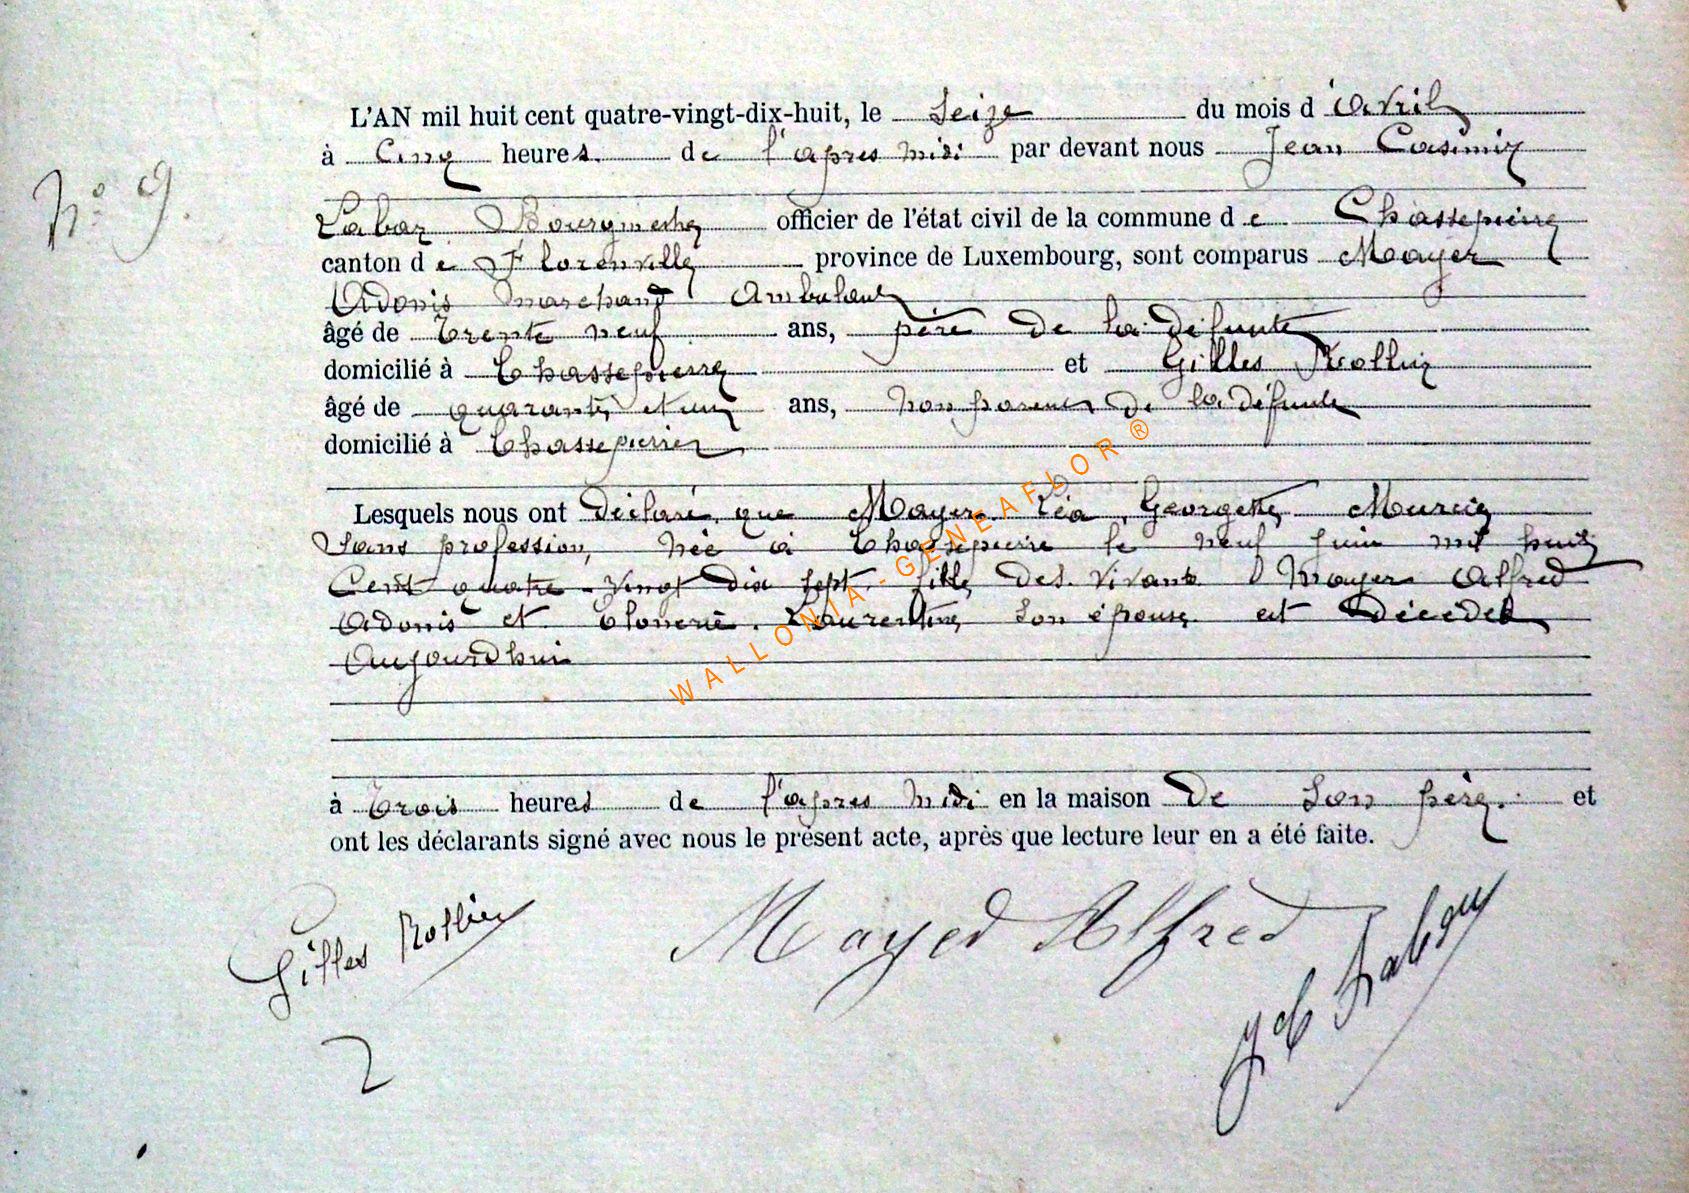 N° 9.
L'AN mil huit cent quatre-vingt-dix-huit, le Seize du mois d'avril
à Cinq heures de l'apres midi par devant nous Jean Casimir
Labar Bourgmestre officier de l'état civil de la commune de Chassepierre
canton de Florenville province de Luxembourg, sont comparus Mayer
Adonis marchand Ambulant
âgé de Trente neuf ans, père de la défunte
domicilié à Chassepierre et Gilles Rollin
âgé de quarante et un ans, non parent de la défunte
domicilié à Chassepierre
Lesquels nous ont déclaré que Mayer Léa Georgette
Sans profession, née à Chassepierre le neuf juin mil huit
Cent quatre-vingt dix sept fille des vivants Mayer Alfred
Adonis et Laurentine son épouse est décédée
Aujourdhui
à Trois heures de l'apres midi en la maison de son père. et
ont les déclarants signé avec nous le présent acte, après que lecture leur en a été faite.
Gilles Rollin Mayer Alfred
WALLONIA-GENEAFLOR ®